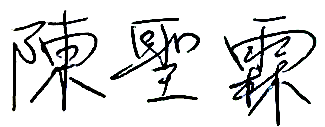 陳聖霖